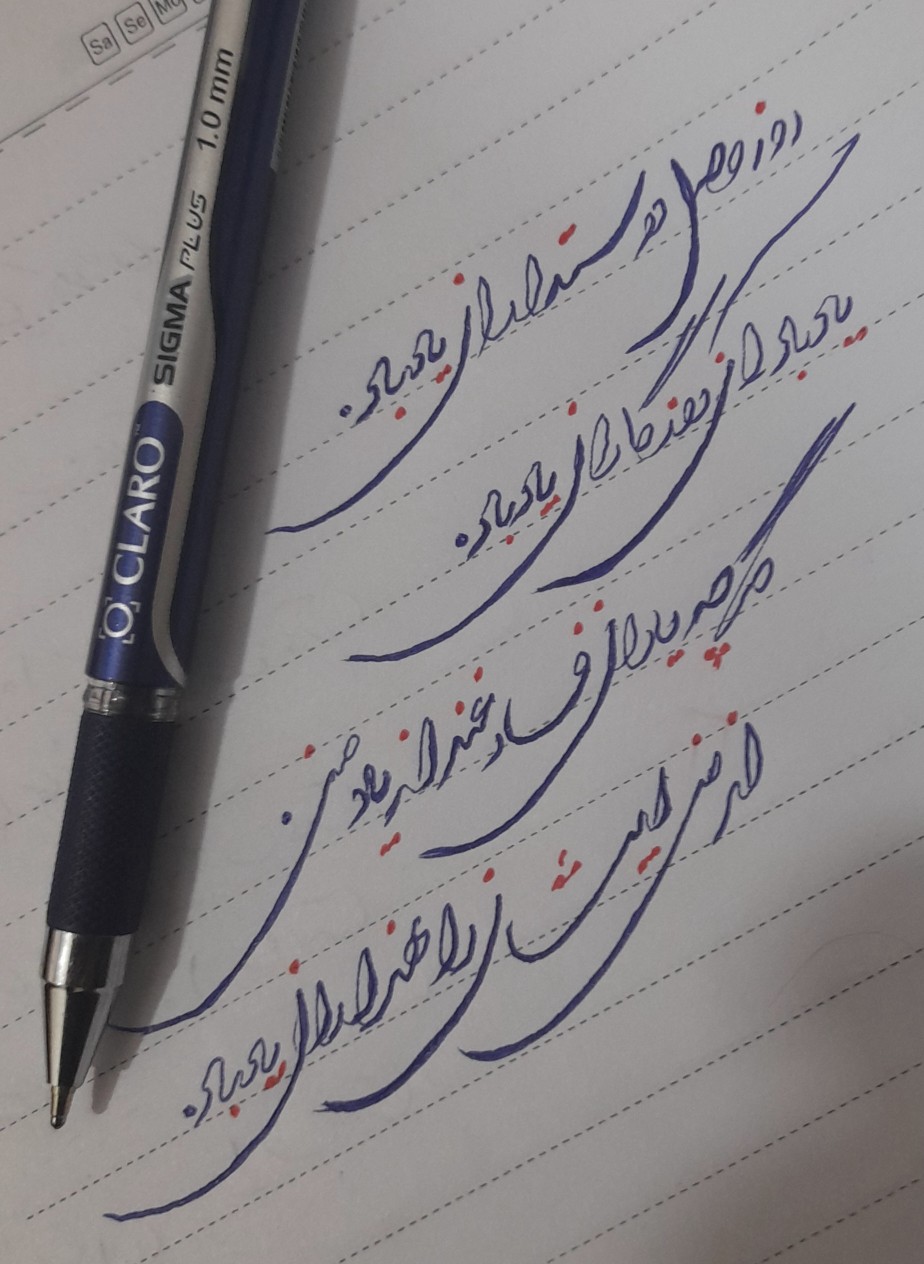 Sa Se Mo
CLARO™ SIGMA PLUS 1.0 mm
روز وصل دوستداران یاد باد.
یاد باد آن روزگاران یاد باد.
گرچه یاران فارغند از یاد من.
از من ایشان را هزاران یاد باد.